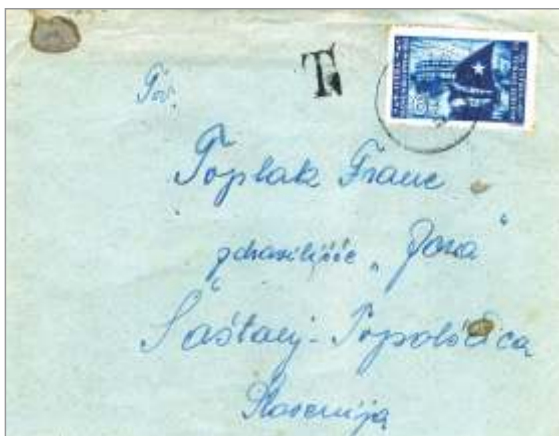 T
Tov.
Toplak Franc
zdravilišće „Dora"
Šaštanj - Topolšćica
Slovenija